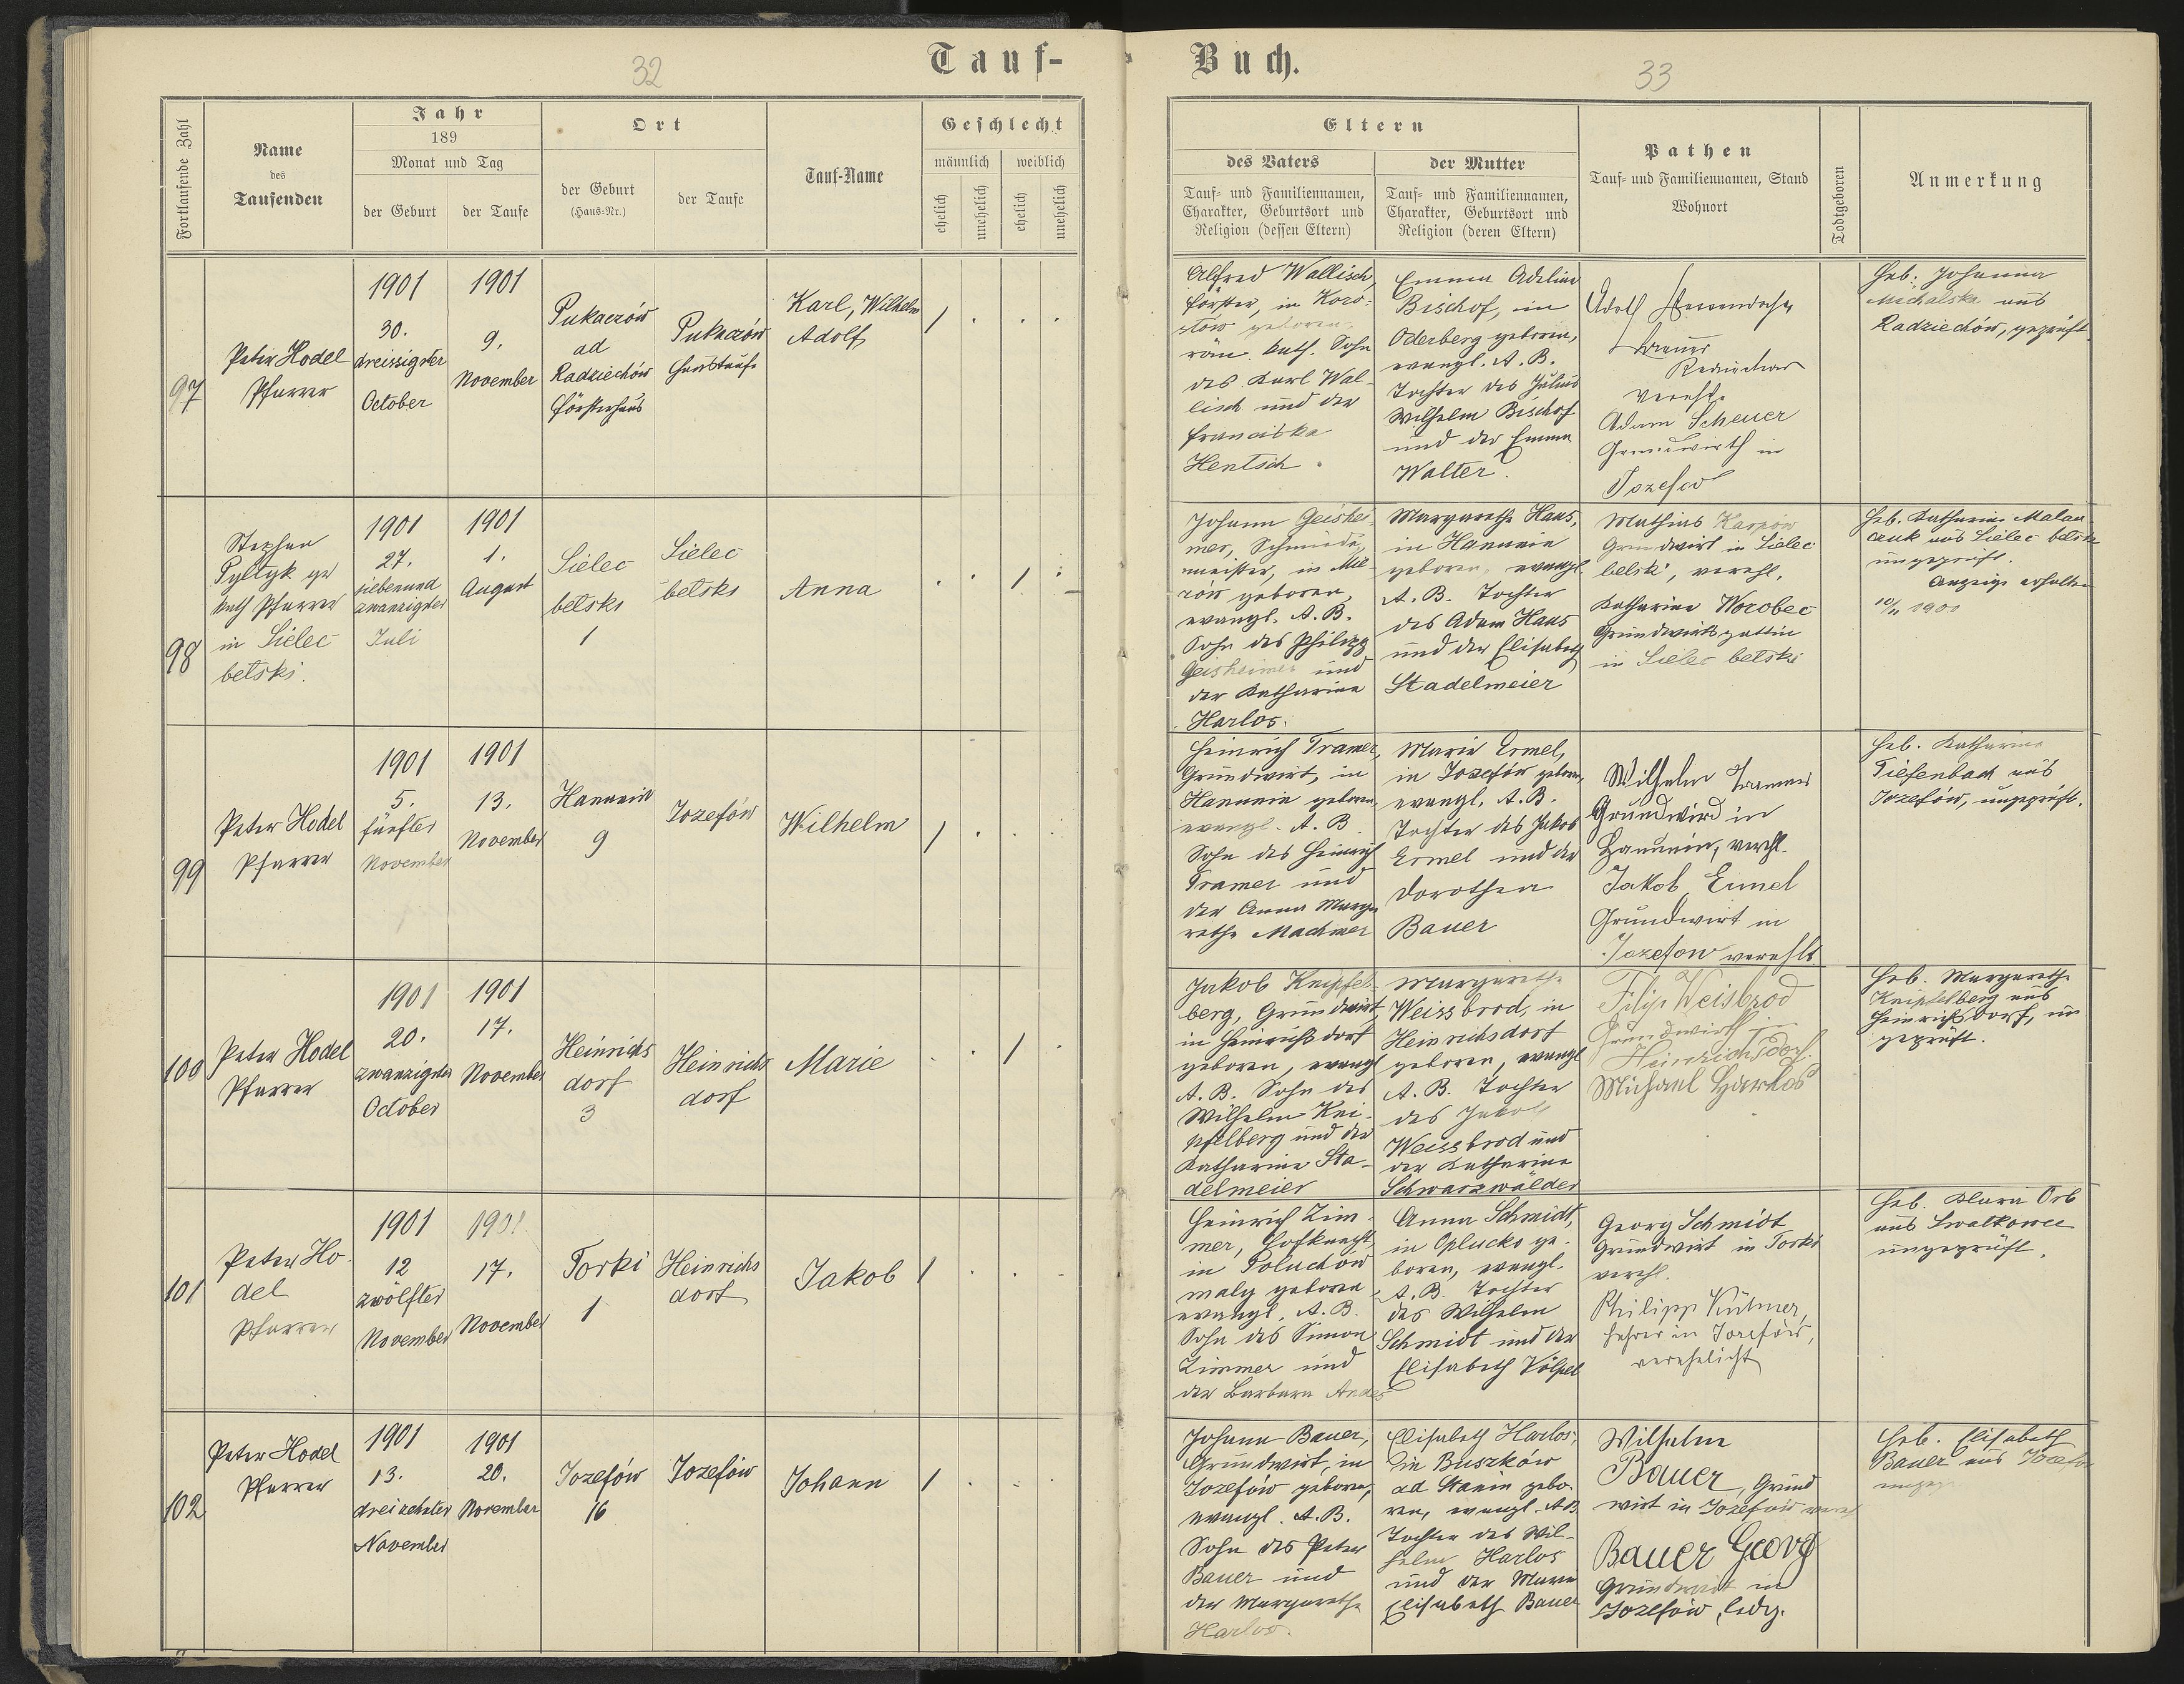 32
Tauf-
Fortlaufende Zahl
Name
des
Taufenden
Jahr
189
Monat und Tag
der Geburt
der Taufe
Ort
der Geburt
(Haus-Nr.)
der Taufe
Tauf-Name
Geschlecht
männlich
weiblich
ehelich
unehelich
ehelich
unehelich
97
Peter Hodel
Pfarrer
1901
30.
dreissigster
October
1901
9.
November
Pukaczów
ad
Radziechów
Försterhaus
Pukaczów
Haustaufe
Karl, Wilhelm
Adolf
98
Stephan
Pyltyk gr
kath Pfarrer
in Sielec
bełski.
1901
27.
siebenund
zwanzigster
Juli
1901
1.
August
Sielec
bełski
1
Sielec
bełski
Anna
99
Peter Hodel
Pfarrer
1901
5.
fünfter
November
1901
13.
November
Hanunin
9
Jozefów
Wilhelm
100
Peter Hodel
Pfarrer
1901
20.
zwanzigster
October
1901
17.
November
Heinrichs
dorf
3
Heinrichs
dorf
Marie
101
Peter Ho-
del
Pfarrer
1901
12
zwölfter
November
1901
17.
November
Torki
1
Heinrichs
dorf
Jakob
102
Peter Hodel
Pfarrer
1901
13.
dreizehnter
November
1901
20.
November
Jozefów
16
Jozefów
Johann
Buch.
33
Eltern
des Vaters
Tauf- und Familiennamen,
Charakter, Geburtsort und
Religion (dessen Eltern)
der Mutter
Tauf- und Familiennamen,
Charakter, Geburtsort und
Religion (deren Eltern)
Pathen
Tauf- und Familiennamen, Stand
Wohnort
Todtgeboren
Anmerkung
Alfred Wallisch,
Förster, in Koro-
geboren,
röm. kath. Sohn
des Karl Wal-
lisch und der
Franciska
Hentsch.
Emma Adeline
Bischof, in
Oderberg geboren,
evangl. A. B.
Tochter des Julius
Wilhelm Bischof
und der Emma
Walter.
Adolf
verehl.
Adam Scheuer
Grundwirth in
Jozefow
Heb: Johanna
Michalska aus
Radziechów, geprüft
Johann Geishei-
mer, Schmiede-
meister, in
geboren,
evangl. A. B.
Sohn des Philipp
Geisheimer und
der Katharina
Harlos.
Margarethe Haus,
in Hanunin
geboren, evangl.
A. B. Tochter
des Adam Haus
und der Elisabeth
Stadelmeier
Mathias Karpow
Grundwirt in Sielec
bełski, verehl.
Katharina Worobec
Grundwirtsgattin
in Sielec bełski
Heb. Katharina Malan-
czuk aus Sielec bełski
ungeprüft.
Anzeige erhalten
Heinrich Tramer,
Grundwirt, in
Hanunin geboren,
evangl. A. B.
Sohn des Heinrich
Tramer und
der Anna Marga
rethe Machmer
Marie Ermel,
in Jozefów geboren,
evangl. A. B.
Tochter des Jakob
Ermel und der
Dorothea
Bauer
Wilhelm Trammer
Grundwird in
Hanunin, verehl.
Jakob Ermel
Grundwirt in
Jozefow verehlt
Heb. Katharina
Tiefenbach aus
Jozefów, ungeprüft.
Jakob Kneipfel-
berg, Grundwirt,
in Heinrichsdorf
geboren, evangl
A. B. Sohn des
Wilhelm Knei-
pfelberg und der
Katharina Sta-
delmeier
Margarethe
Weissbrod, in
Heinrichsdorf
geboren, evangl
A. B. Tochter
des Jakob
Weissbrod und
der Katharina
Schwarzwälder
Filip Weisbrod
Grundwirth in
Heinrichsdorf.
Michael Harlos
Heb. Margarethe
Kneipfelberg aus
Heinrichsdorf, un
geprüft.
Heinrich Zim-
mer, Hofknecht
in Poluchow
maly geboren
evangl. A. B.
Sohn des Simon
Zimmer und
der Barbara Andes
Anna Schmidt,
in Oplucko ge-
boren, evangl.
A. B. Tochter
des Wilhelm
Schmidt und der
Elisabeth Völpel
Georg Schmidt
Grundwirt in Torki
verehl.
Philipp Kühner,
Lehrer in Jozefów,
verehelicht
Heb. Klara Orb
aus
ungeprüft.
Johann Bauer,
Grundwirt, in
Jozefów geboren,
evangl. A. B.
Sohn des Peter
Bauer und
der Margarethe
Harlos.
Elisabeth Harlos,
in Buszków
ad Stanin gebo-
ren, evangl. A B.
Tochter des Wil-
helm Harlos
und der Maria
Elisabeth Bauer
Wilhelm
Bauer, Grund
wirt in Jozefow verehl
Bauer Georg
Grundwirt in
Jozefów, ledg.
Heb. Elisabeth
Bauer aus Jozefow